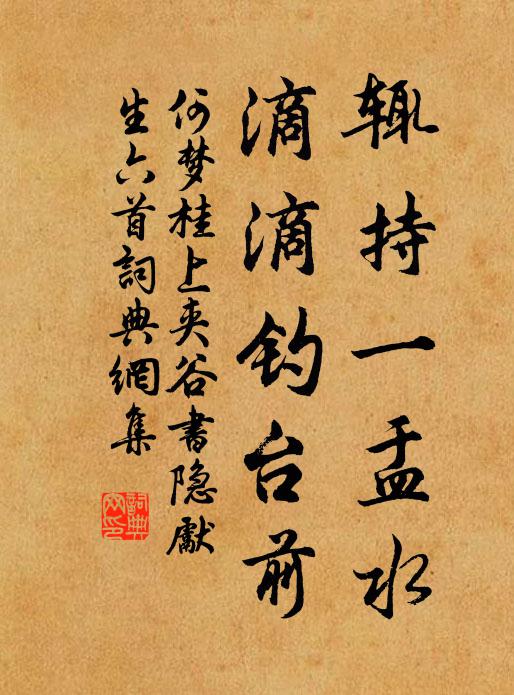 辄持一盂水
滴滴钓台前
何梦桂上夹谷书隐獻
生六首詞典網集
詞典網印